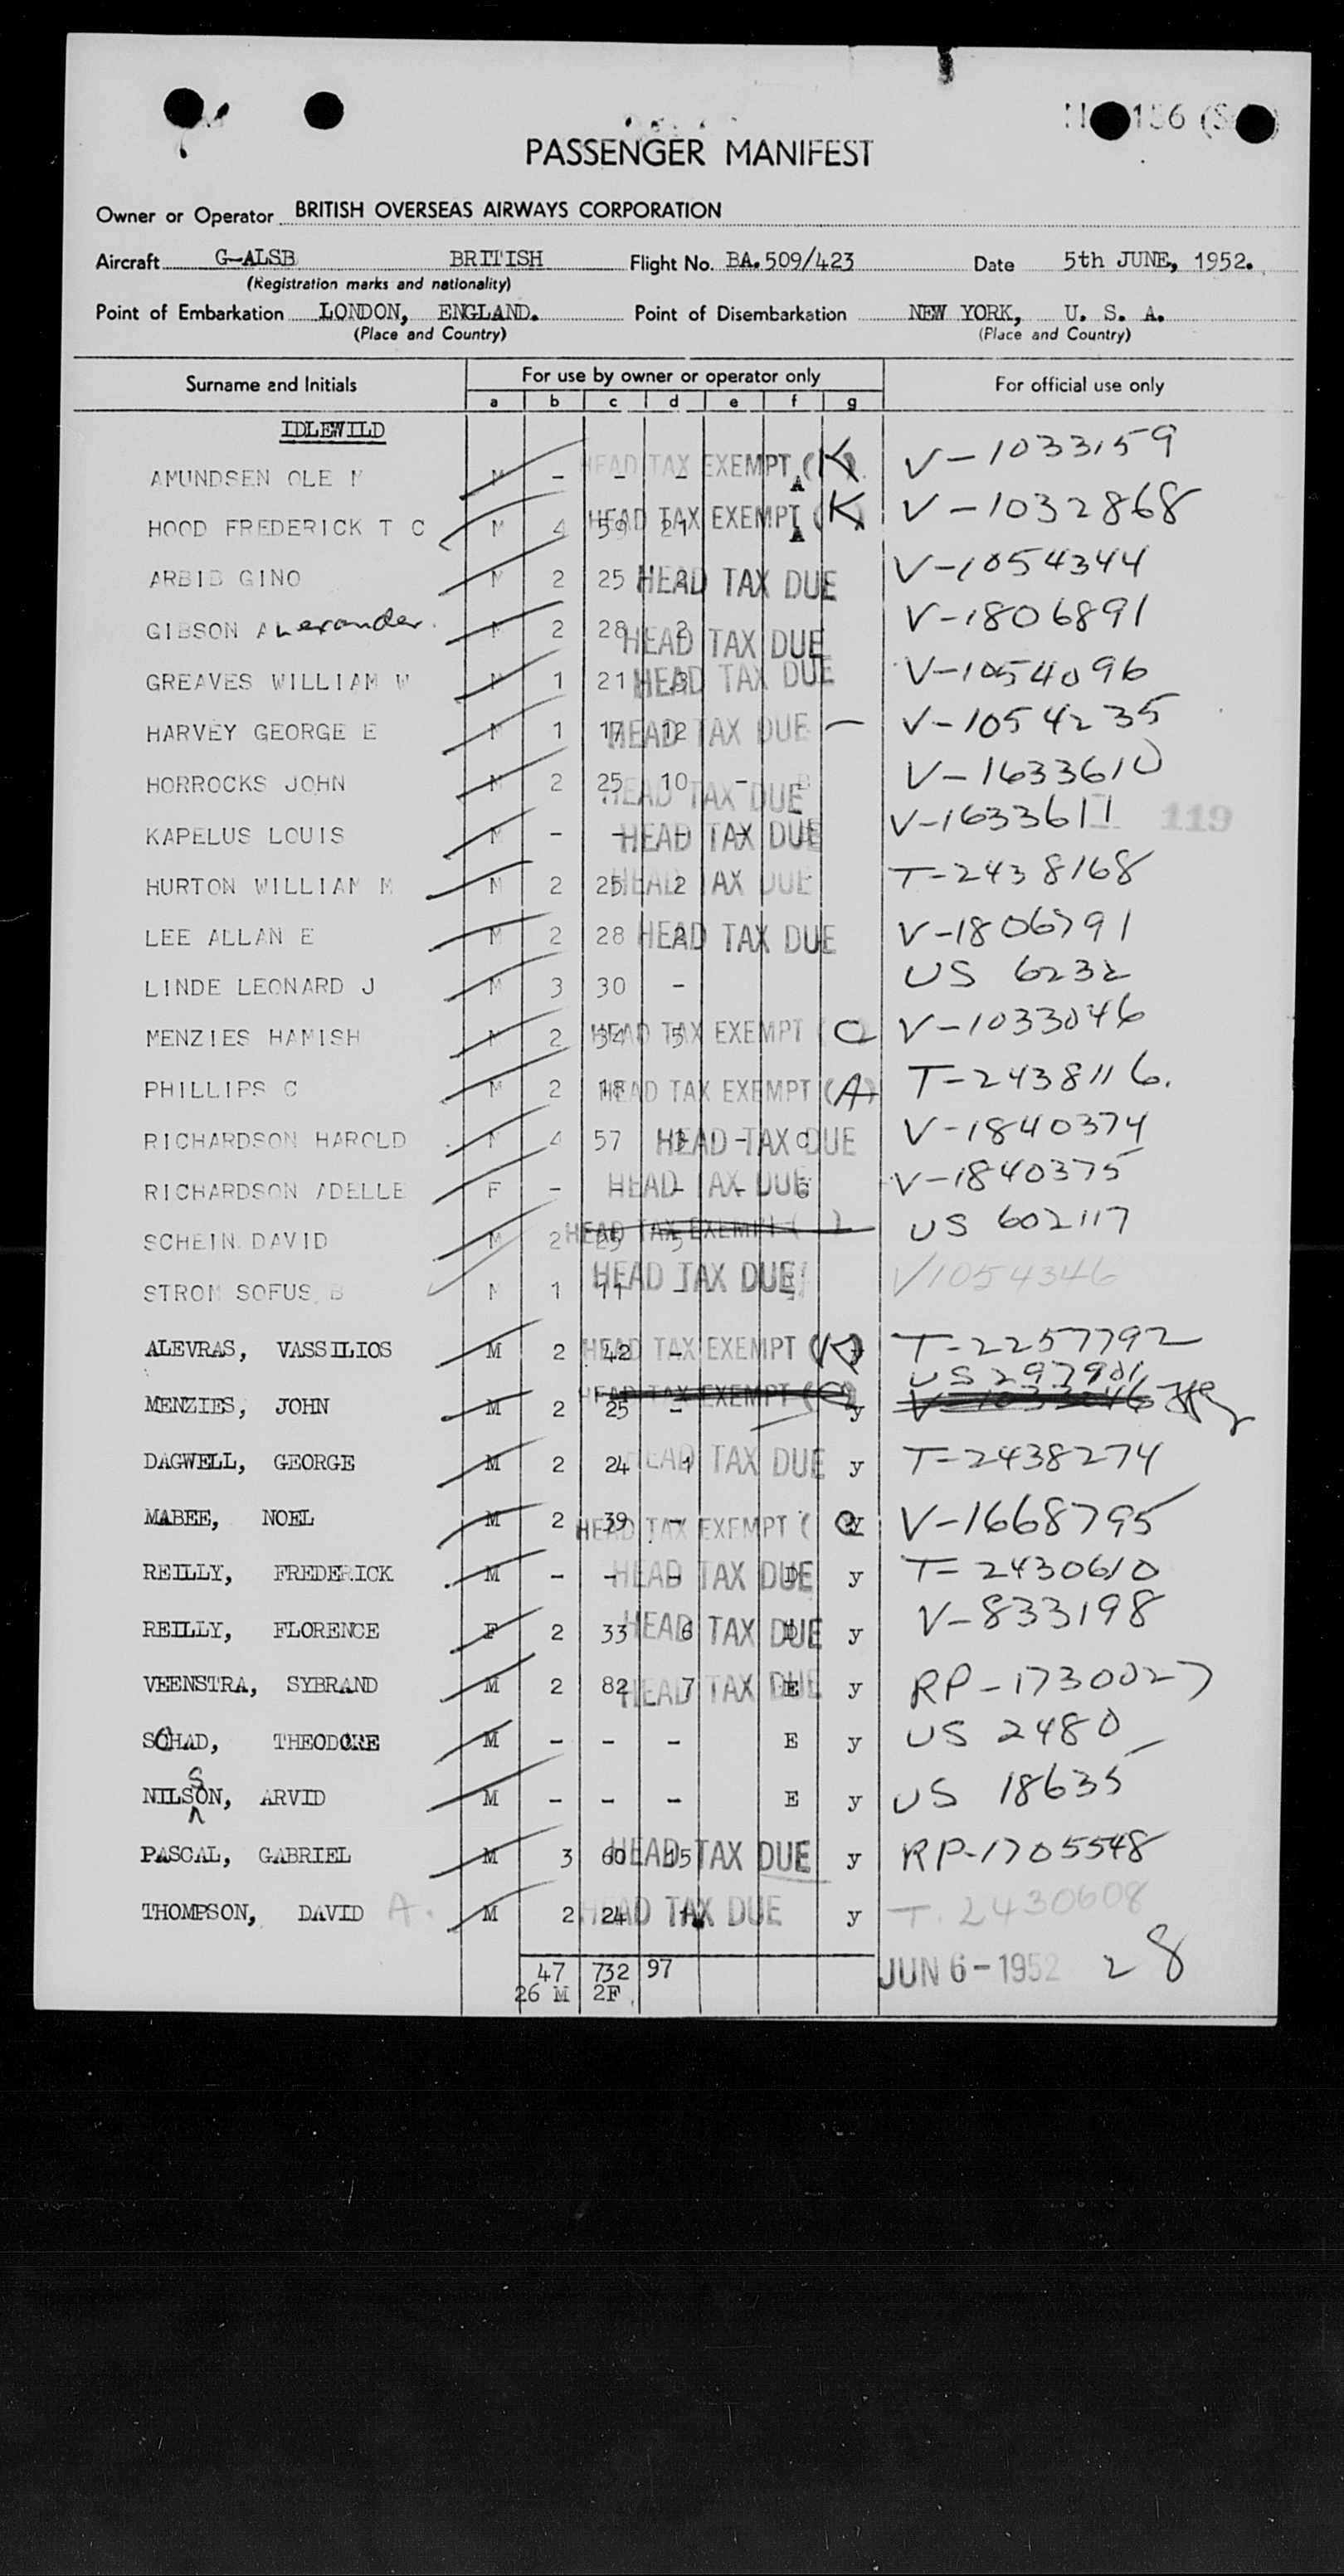 PASSENGER MANIFEST
Owner or Operator BRITISH OVERSEAS AIRWAYS CORPORATION
Aircraft G-ALSB BRITISH Flight No. BA.509/423 Date 5th JUNE, 1952.
(Registration marks and nationality)
Point of Embarkation LONDON, ENGLAND. Point of Disembarkation NEW YORK, U. S. A.
(Place and Country) (Place and Country)
Surname and Initials For use by owner or operator only For official use only
a b c d e f g
IDLEWILD
AMUNDSEN OLE M M - - - HEAD TAX EXEMPT (K) A V-1033159
HOOD FREDERICK T C M 4 59 21 HEAD TAX EXEMPT (K) A V-1032868
ARBIB GINO M 2 25 2 HEAD TAX DUE V-1054344
GIBSON Alexander. M 2 28 2 HEAD TAX DUE V-1806891
GREAVES WILLIAM W M 1 21 3 HEAD TAX DUE V-1054096
HARVEY GEORGE E M 1 17 12 HEAD TAX DUE - V-1054235
HORROCKS JOHN M 2 25 10 - HEAD TAX DUE V-1633610
KAPELUS LOUIS M - - - - HEAD TAX DUE V-1633611 119
HURTON WILLIAM M M 2 25 2 HEAD TAX DUE T-2438168
LEE ALLAN E M 2 28 2 HEAD TAX DUE V-1806791
LINDE LEONARD J M 3 30 - US 6232
MENZIES HAMISH M 2 34 5 HEAD TAX EXEMPT (C) V-1033046
PHILLIPS C M 2 18 HEAD TAX EXEMPT (A) T-2438116.
RICHARDSON HAROLD M 4 57 13 - HEAD TAX DUE V-1840374
RICHARDSON ADELLE F - - - - HEAD TAX DUE G V-1840375
SCHEIN DAVID M 2 25 5 HEAD TAX EXEMPT ( ) US 602117
STROM SOFUS B M 1 11 - HEAD TAX DUE V1054346
ALEVRAS, VASSILIOS M 2 42 - HEAD TAX EXEMPT (K) T-2257792
US 297901
MENZIES, JOHN M 2 25 - HEAD TAX EXEMPT (C) y V-1033046
DAGWELL, GEORGE M 2 24 1 HEAD TAX DUE y T-2438274
MABEE, NOEL M 2 39 - HEAD TAX EXEMPT ( C y V-1668795
REILLY, FREDERICK M - - - HEAD TAX DUE D y T-2430610
REILLY, FLORENCE F 2 33 6 HEAD TAX DUE D y V-833198
VEENSTRA, SYBRAND M 2 82 7 HEAD TAX DUE E y RP-1730027
SCHAD, THEODORE M - - - E y US 2480
S
NILSON, ARVID M - - - E y US 18635
PASCAL, GABRIEL M 3 60 15 HEAD TAX DUE y RP-1705548
THOMPSON, DAVID A. M 2 24 1 HEAD TAX DUE y T. 2430608
47 732 97 JUN 6-1952 28
26 M 2F